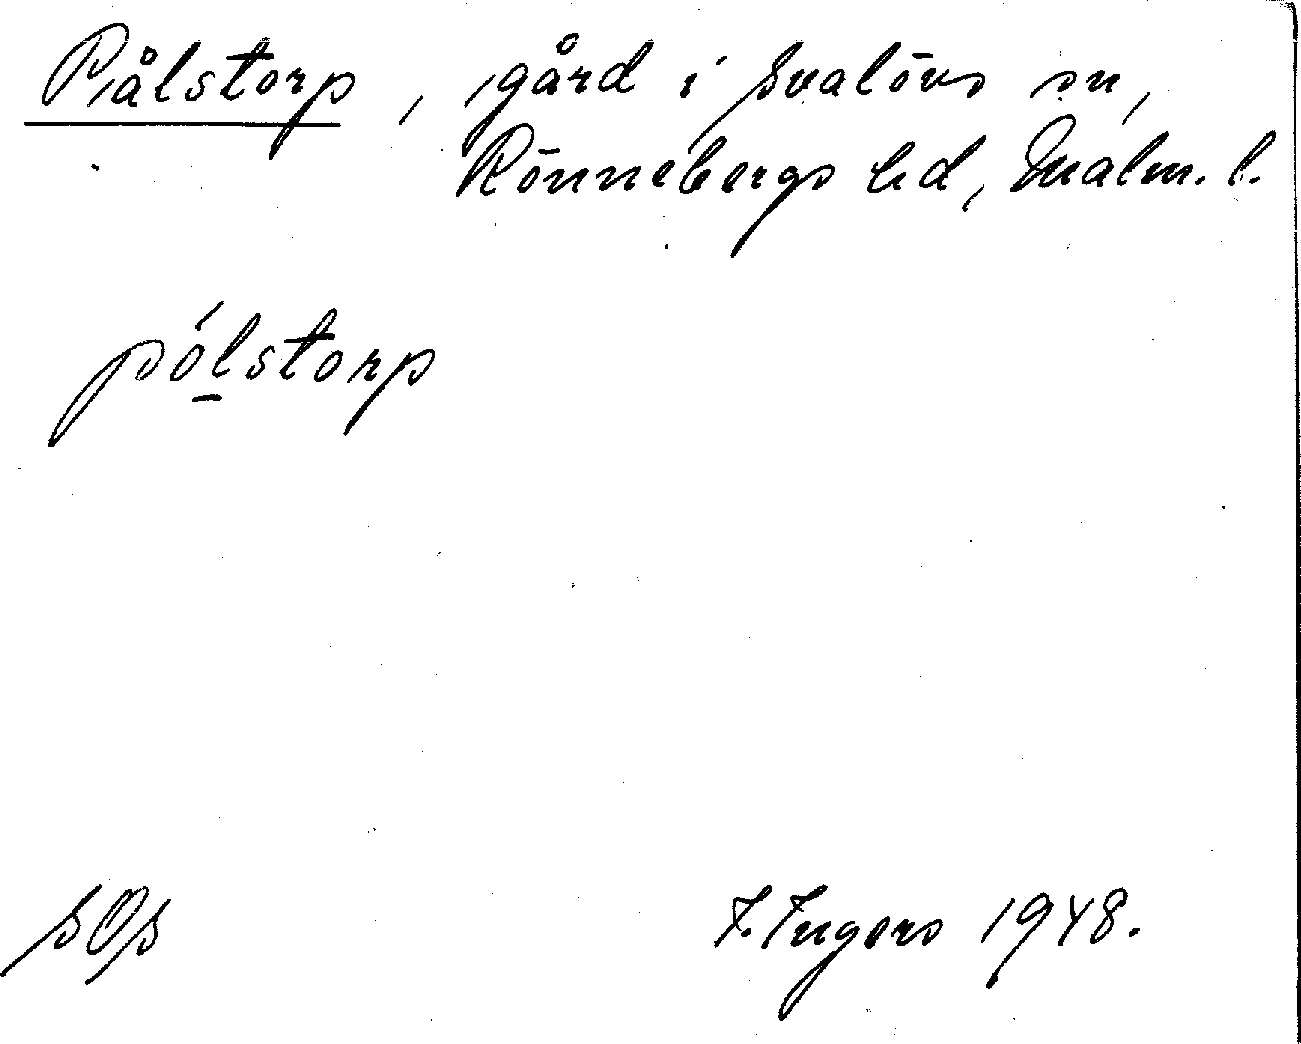 Pålstorp, gård i Svalövs sn,
Rönnebergs hd, Malm. l.
pólstorp
SOS
I. Ingers 1948.